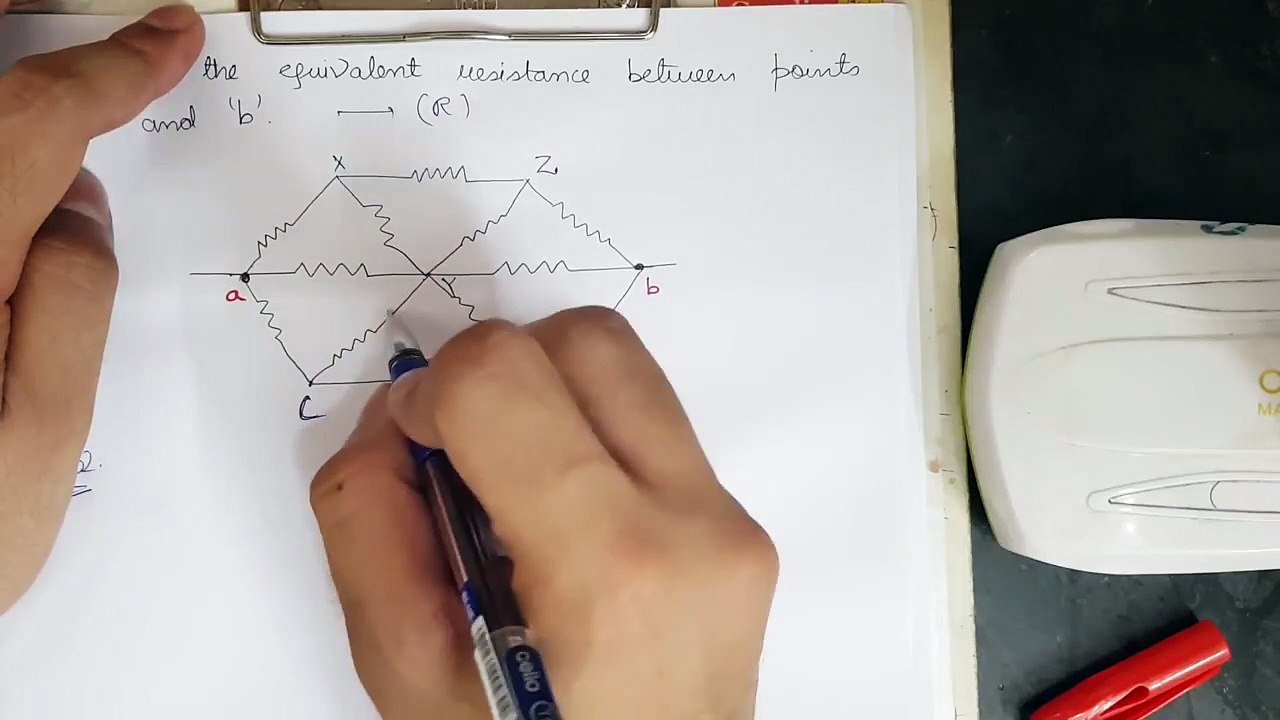 the equivalent resistance between points
and 'b'. → (R)
X
Z
a
Y
b
C
2.
cello